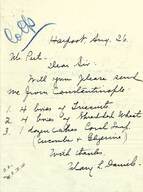 Harpoot, Aug. 26
Mr. Peet,
Dear Sir:
Will you please send
me from Constantinople
1 4 boxes of
2 4 boxes of Shredded Wheat
3 1 dozen cakes Soap
(Cucumber & Glycerine)
With thanks
Mary L. Daniels